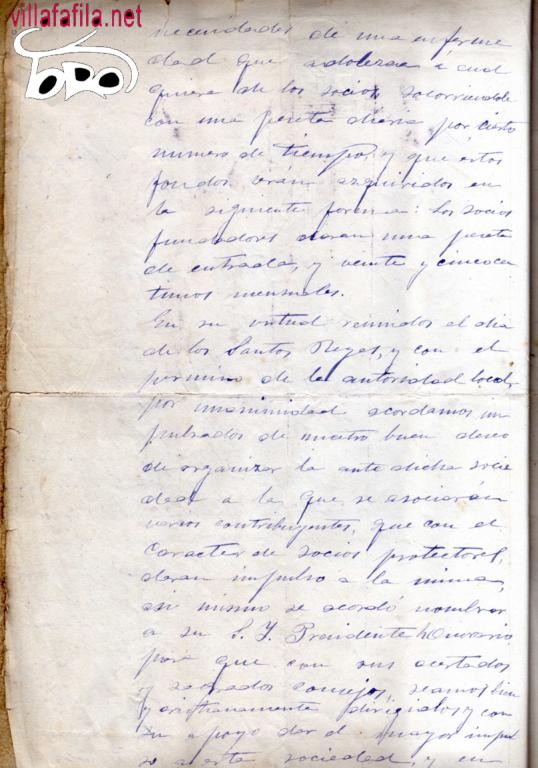 villafafila.net
necesidades de una enferme
dad que adolezca a cual
quiera de los socios socorriendole
con una peseta diaria por cierto
numero de tiempo, y que estos
fondos serán azquiridos en
la siguiente forma: los socios
fundadores daran una peseta
de entrada, y veinte y cinco cen
timos mensuales.
En su virtud reunidos el dia
de los Santos Reyes, y con el
permiso de la autoridad local,
por unanimidad acordamos im
pulsados de nuestro buen deseo
de organizar la ante dicha socie
dad a la que se asociarán
varios contribuyentes, que con el
caracter de socios protectores,
daran impulso a la misma,
asi mismo se acordó nombrar
a su S. Y. Presidente honorario
para que con sus acertados
y sagrados consejos, seamos bien
y cristianamente dirigidos y con
su apoyo dar el mayor impul
so a esta sociedad, y en